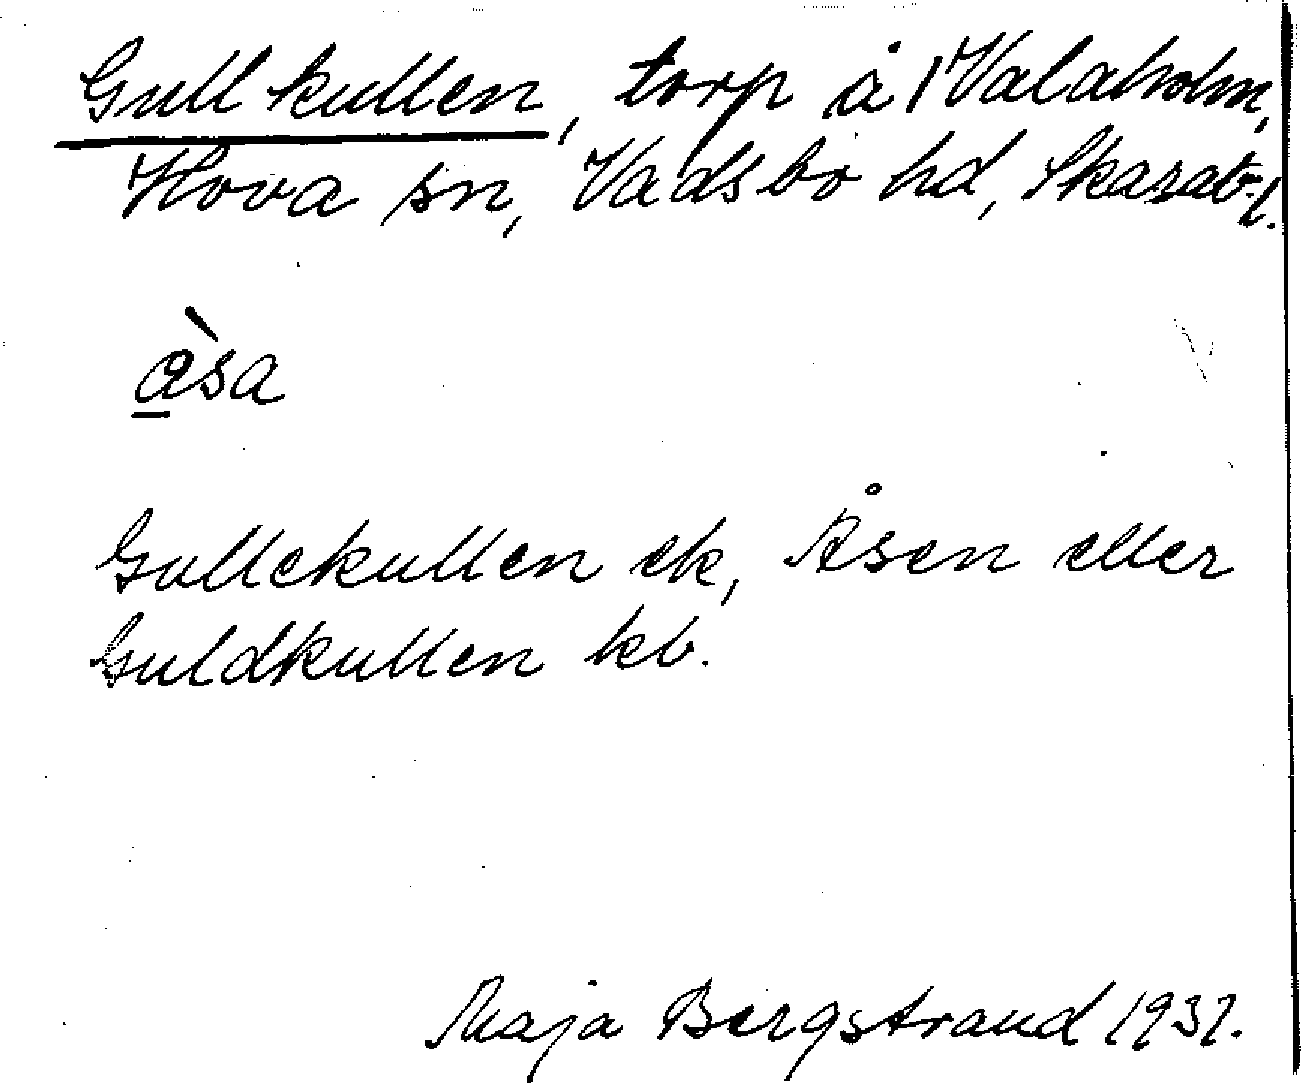 Gullkullen, torp å Valaholm,
Hova sn, Vadsbo hd, Skarab. l.
åsa
Gullekullen ek, Åsen eller
Guldkullen kb.
Maja Bergstrand 1937.